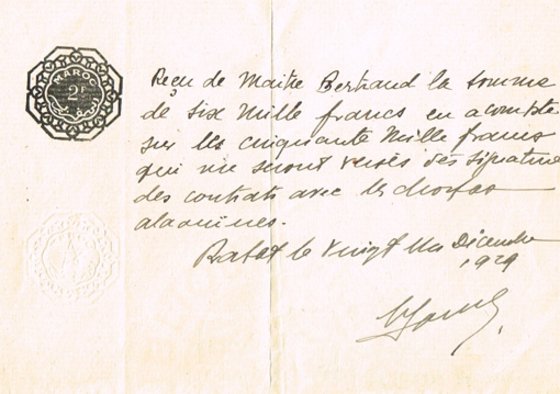 MAROC
2F
Reçu de Maître Bertrand la somme
de six mille francs en acompte
sur les cinquante mille francs
qui me seront versés dès signature
des contrats avec les chorfas
alaouines.
Rabat le vingt un Décembre
1929